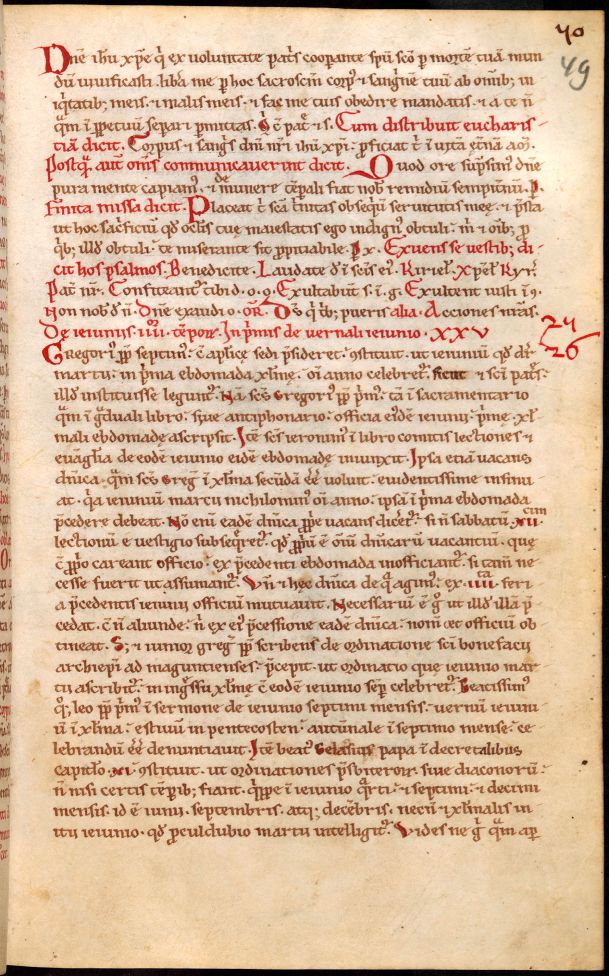 40
49
Dn̄e ih̄u xp̄e q̇ ex voluntate pat̄s cooperante spū scō p morte᷑ tuā mun
dū vivificasti. libera me p hoc sacroscm̄ corp᷒ & sanguinē tuū ab om̄ib; in
iq̇tatib; meis. & malis meis. & fac me tuis obedire mandatis. & a te n̄
q̄m ī ppetuū separari pmittas. Q̇ c̄ pat̄ & s. Cum distribuit eucharis-
tiā dicit. Corpus & sangs dn̄i nr̄i ih̄u xp̄i. pficiat t̄ ī vitā et̄nā am̄.
Postq̄ aut̄ om̄s communicaverint dicit. Quod ore sūpsim᷒ dn̄e
pura mente capiam᷒. & de munere tēpali fiat nob̄ remediū sempit̄nū. P.
Finita missa dicit. Placeat t̄ scā t̄nitas obsequiū servitutis meę. & p̄sta
ut hoc sac̄ficiū qd̄ oclis tuę maiestatis ego indign᷒ obtuli. m̄ & om̄ib; p
q̇b; illd̄ obtuli. te miserante sit ppitiabile. P x. Exuens se vestib; di-
cit hos psalmos. Benedicite. Laudate dn̄ ī scīs ei᷒. Kiriel̄. Xp̄el̄. Kyr̄.
Pat̄ nr̄. Confiteant᷑ tibi d. o. Exultabūt s. ī. g. Exultent iusti ī
Non nob̄ dn̄ n̄. Dn̄e exaudi o. OR̄. Ds̄ q̇ tb; pueris alia. Acciones nr̄as.
De ieiuniis iiii. tēpor̄. In p̄mis de vernali ieiunio. XXV
24
26
Gregori᷒ pp̄ septim᷒. c̄ aplicę sedi p̄sideret. 9stituit. ut ieiuniū qd̄ dr̄
martii᷒. in p̄ma ebdomada xl̄mę. om̄i anno celebret᷑. sicut & scī pat̄s.
illd̄ instituisse legunt᷑. Nā scs̄ Gregori᷒ pp̄ p̄m᷒. tā ī sacramentario
q̄m ī g̈duali libro. sive antiphonario. officia eidē ieiunii p̄mę xl̄-
mali ebdomadę ascripsit. Itē scs̄ ieronim᷒ ī libro comitis lectiones &
evāglia de eodē ieiunio eidē ebdomadę iniunxit. Ipsa etiā vacans
dn̄ica. q̄m scs̄ greg̅ ī xl̄ma secūdā eē voluit. evidentissime insinu-
at. q̇a ieiuniū martii nichilomin᷒ om̄i anno. ipsa ī p̄ma ebdomada
p̄cedere debeat. Nō enī eadē dn̄ica ppe vacans diceret᷑. si n̄ sabbatū xii cim
lectionū e vestigio subseq̄ret᷑. qd̄ ppiū ē om̄iū dn̄icarū vacantiū. quę
c̄ pprio careant officio. ex p̄cedenti ebdomada inofficiant᷑. si tam̄ ne-
cesse fuerit ut assumant᷑. Vn̄ & hęc dn̄ica de q̄ agim᷒. ex .iiii. ta feri-
a p̄cedentis ieiunii officiū mutuavit. Necessariū ē g̊ ut illd̄ illā p̄-
cedat. c̄ n̄ aliunde. n̄ ex ei᷒ p̄cessione eadē dn̄ica. nom̄ & officiū ob-
tineat. S; & iunior greg̅ pp̄ scribens de ordinatione scī bonefacii
archiepi᷒ ad maguntienses. p̄cepit. ut ordinatio quę ieiunio mar-
tii ascribit᷑. in ing̈ssu xl̄mę c̄ eodē ieiunio semp celebret᷑. Beatissim᷒
q̊; leo pp̄ p̄m᷒ ī sermone de ieiunio septimi mensis. vernū ieiuni-
ū ī xl̄ma. estivū in pentecosten. autūnale ī septimo mense. ce-
lebrandū eē denuntiavit. Itē beat᷒ Gelasius papa ī decretalibus
capitlo. xi. 9stituit. ut ordinationes p̄sbiteror̄. sive diaconorū.
n̄ nisi certis tēpib; fiant. q̄ppe ī ieiunio q̄rti. & septimi. & decimi
mensis. id ē iunii. septembris. atq; decēbris. necn̄ & xl̄malis in-
itii ieiunio. qd̄ pculdubio martii intelligit᷑. Vides ne g̊ q̄m ap